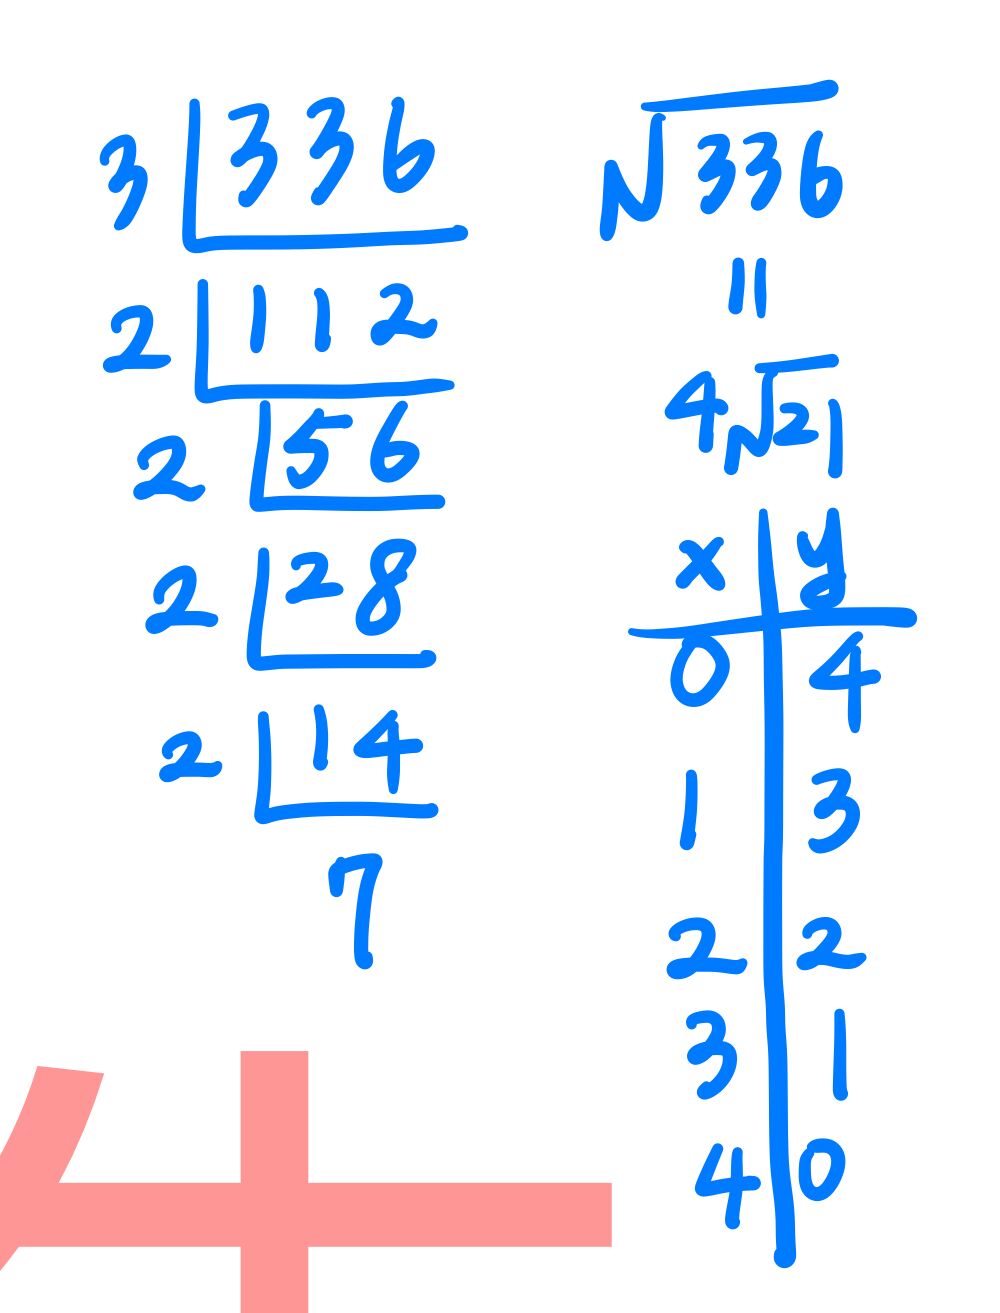 3 | 336
2 | 112
2 | 56
2 | 28
2 | 14
7
√336
=
4√21
x | y
0 | 4
1 | 3
2 | 2
3 | 1
4 | 0